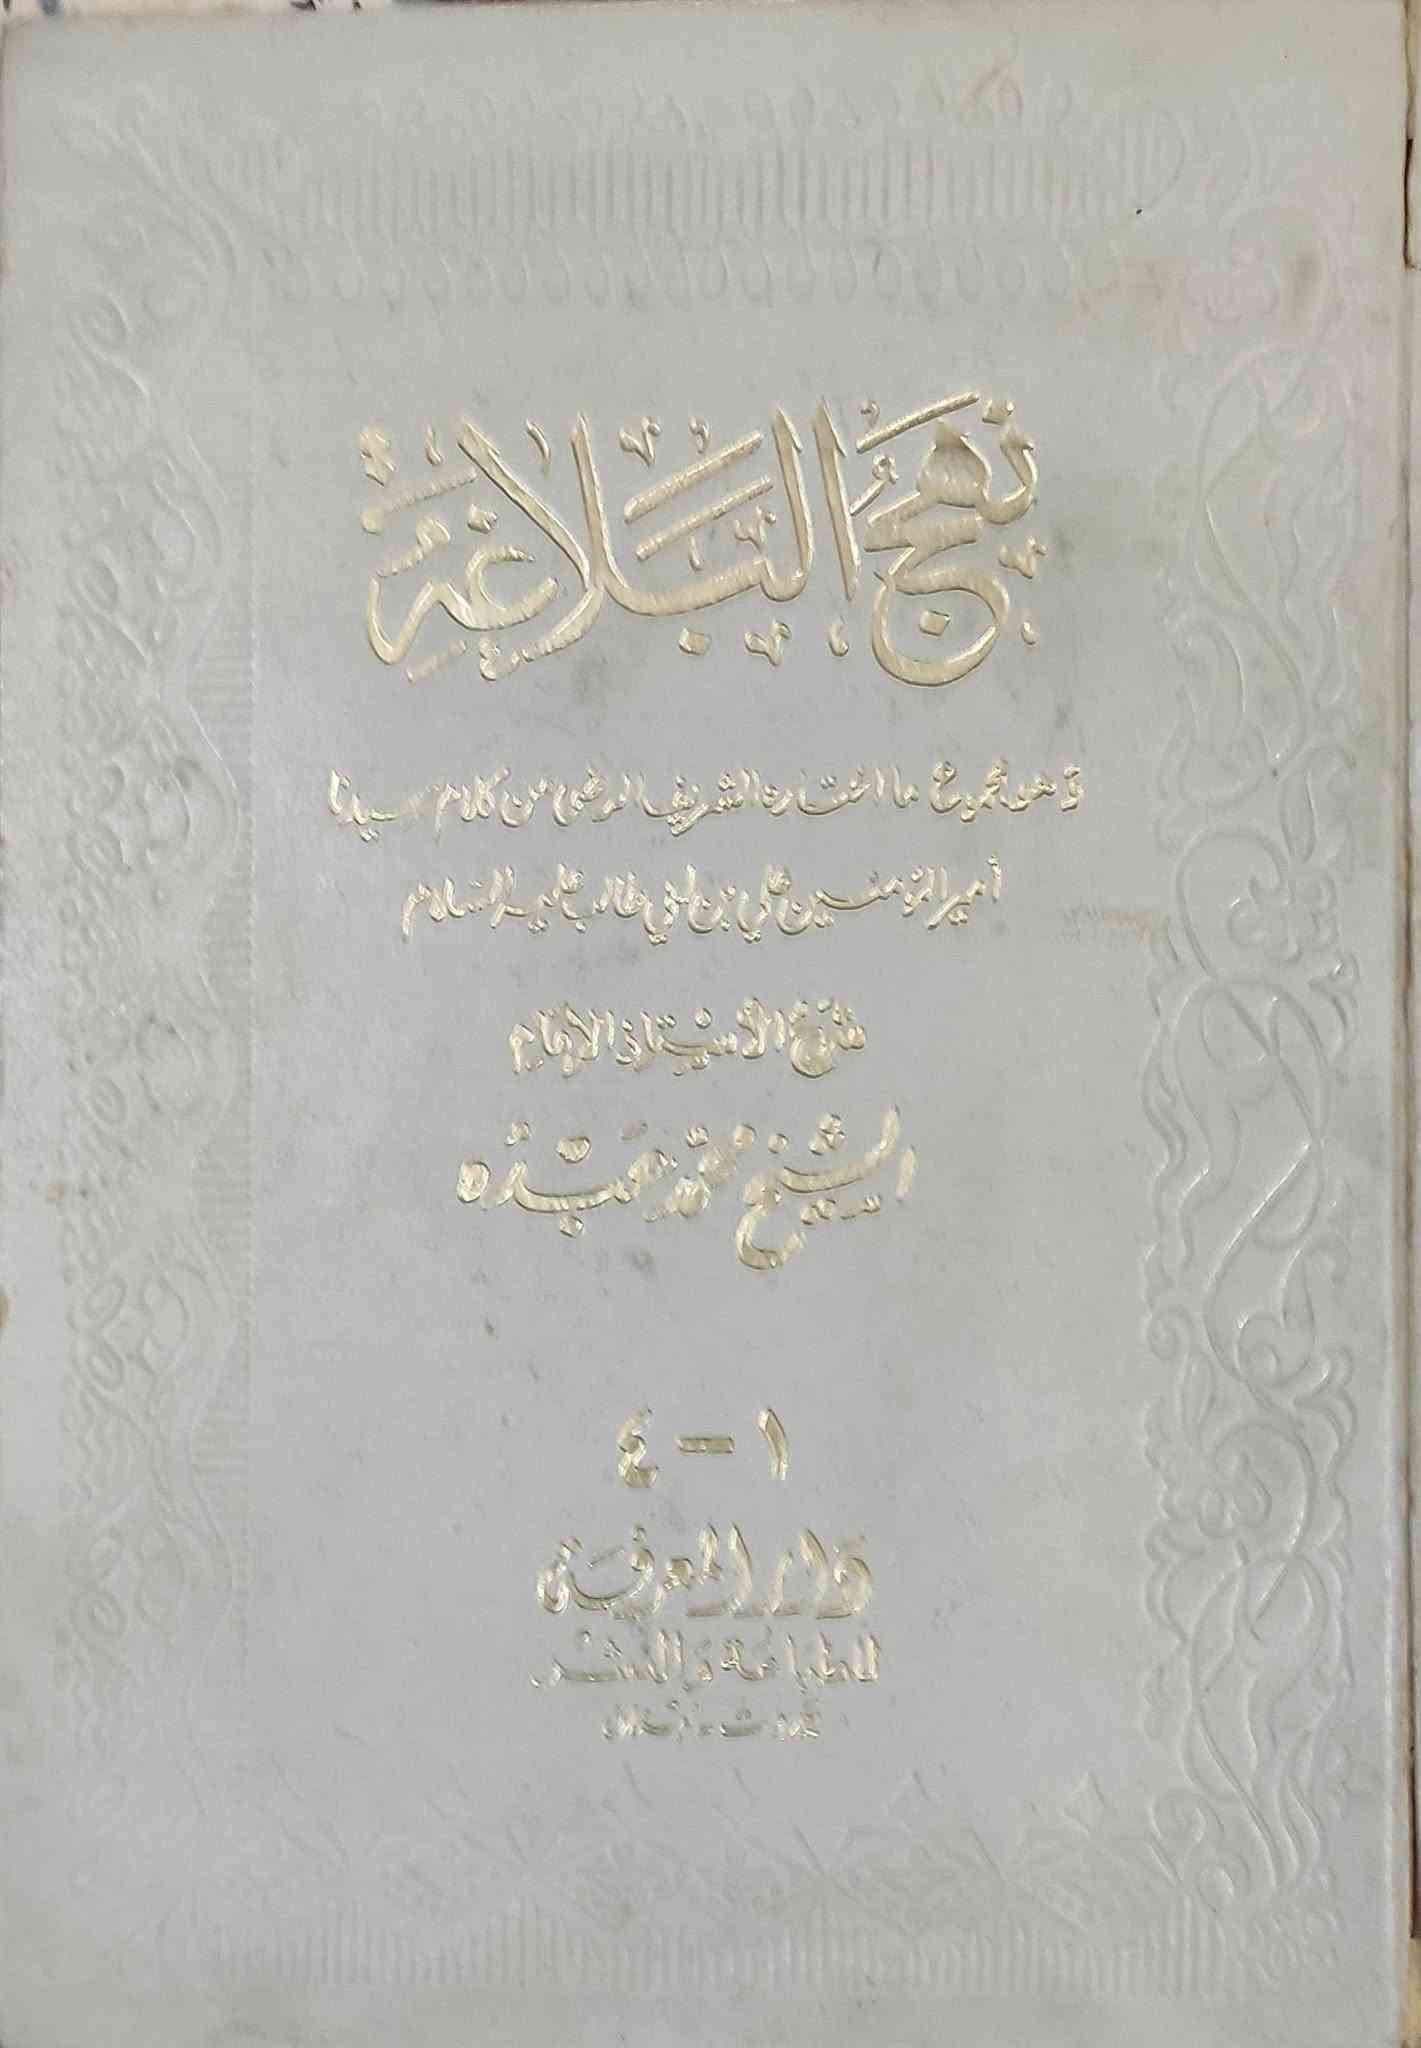 نَهْجُ البَلَاغَة
وَهُوَ مجموع ما اختاره الشريف الرضي من كلام سيدنا
أمير المؤمنين علي بن أبي طالب عليه السلام
شرح الأستاذ الإمام
الشيخ محمد عبده
١ - ٤
دار المعرفة
للطباعة والنشر
بيروت - لبنان